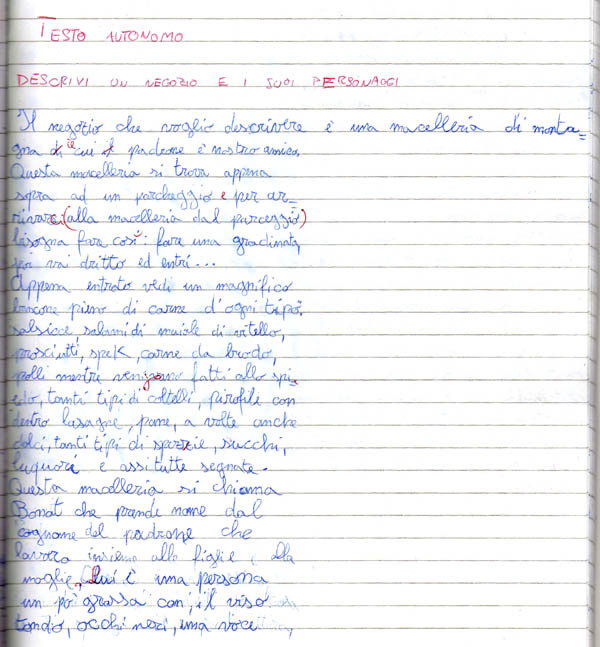 TESTO AUTONOMO
DESCRIVI UN NEGOZIO E I SUOI PERSONAGGI
Il negozio che voglio descrivere è una macelleria di monta=
gna il cui padrone è nostro amico.
Questa macelleria si trova appena
sopra ad un parcheggio e per ar=
rivarci (alla macelleria dal parceggio)
bisogna fare così: fare una gradinata,
poi vai dritto ed entri...
Appena entrato vedi un magnifico
bancone pieno di carne d'ogni tipo:
salsicce, salami di maiale di vitello,
prosciutti, spek, carne da brodo,
polli mentre vengono fatti allo spi=
edo, tanti tipi di coltelli, pirofile con
dentro lasagne, pane, a volte anche
dolci, tanti tipi di spezie, succhi,
liquori e assi tutte segnate.
Questa macelleria si chiama
Bonat che prende nome dal
cognome del padrone che
lavora insieme alle figlie e alla
moglie, Lui è una persona
un po' grassa con, il viso
tondo, occhi neri, una voce